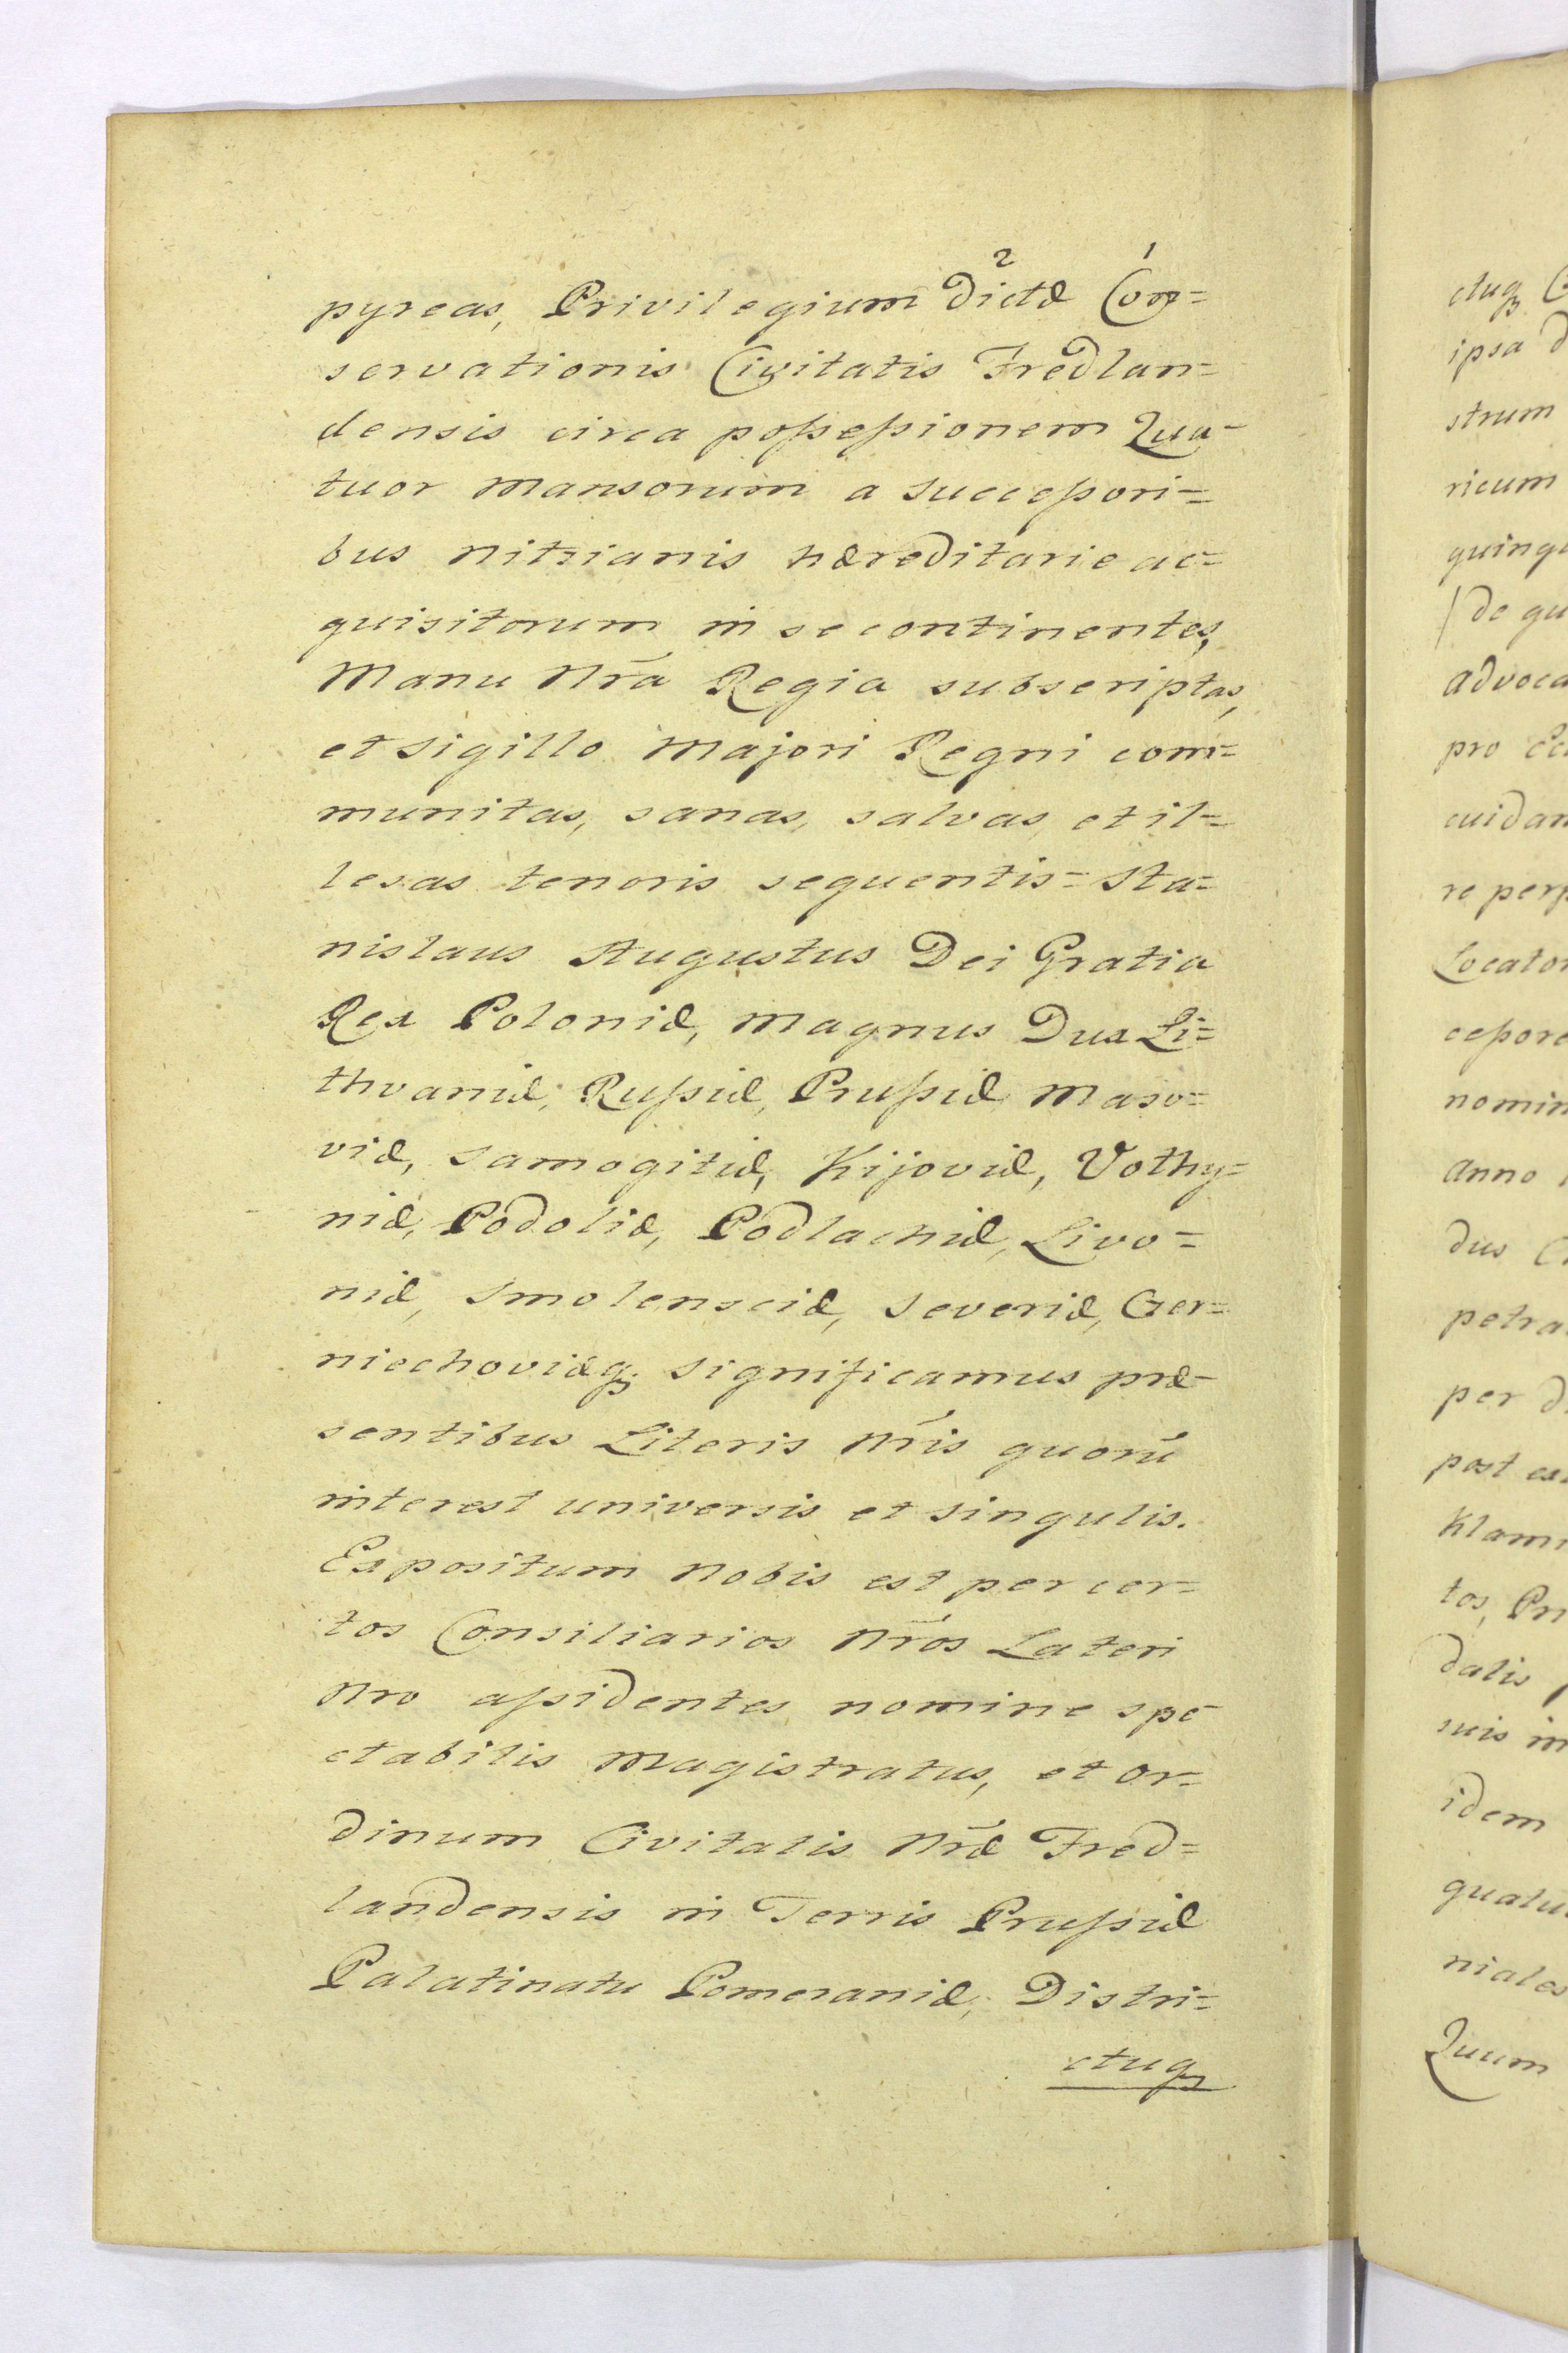 pyreas, Privilegium 2dictæ 1Con=
servationis Civitatis Fredlan=
densis circa poßeßionem Qua=
tuor Mansorum a Succeßori=
bus Nitzianis hæreditarie ac=
quisitorum in se continentes,
Manu Nrā Regia subscriptas,
et Sigillo Majori Regni com=
munitas, sanas, salvas, et il=
lesas tenoris sequentis = Sta=
nislaus Augustus Dei Gratia
Rex Poloniæ, Magnus Dux Li=
thvaniæ, Rußiæ, Prußiæ, Maso=
viæ, Samogitiæ, Kijoviæ, Volhy=
niæ, Podoliæ, Podlachiæ, Livo=
niæ, Smolensciæ, Severiæ, Czer=
niechoviæq; Significamus præ=
sentibus Literis Nr̄is quorū
interest universis et singulis.
Expositum Nobis est per cer=
tos Consiliarios Nr̄os Lateri
Nro aßidentes nomine spe=
ctabilis Magistratus, et Or=
dinum Civitatis Nr̄æ Fred=
landensis in Terris Prußiæ
Palatinatu Pomeraniæ, Distri=
ctuq;
ctuq;
ipsa
strum
ricum
de
advoca
pro
cuidam
re
Locator
nomin
Anno
dus
petra
per
post
Klam
tos,
dalis
suis in
idem
niales
Quum